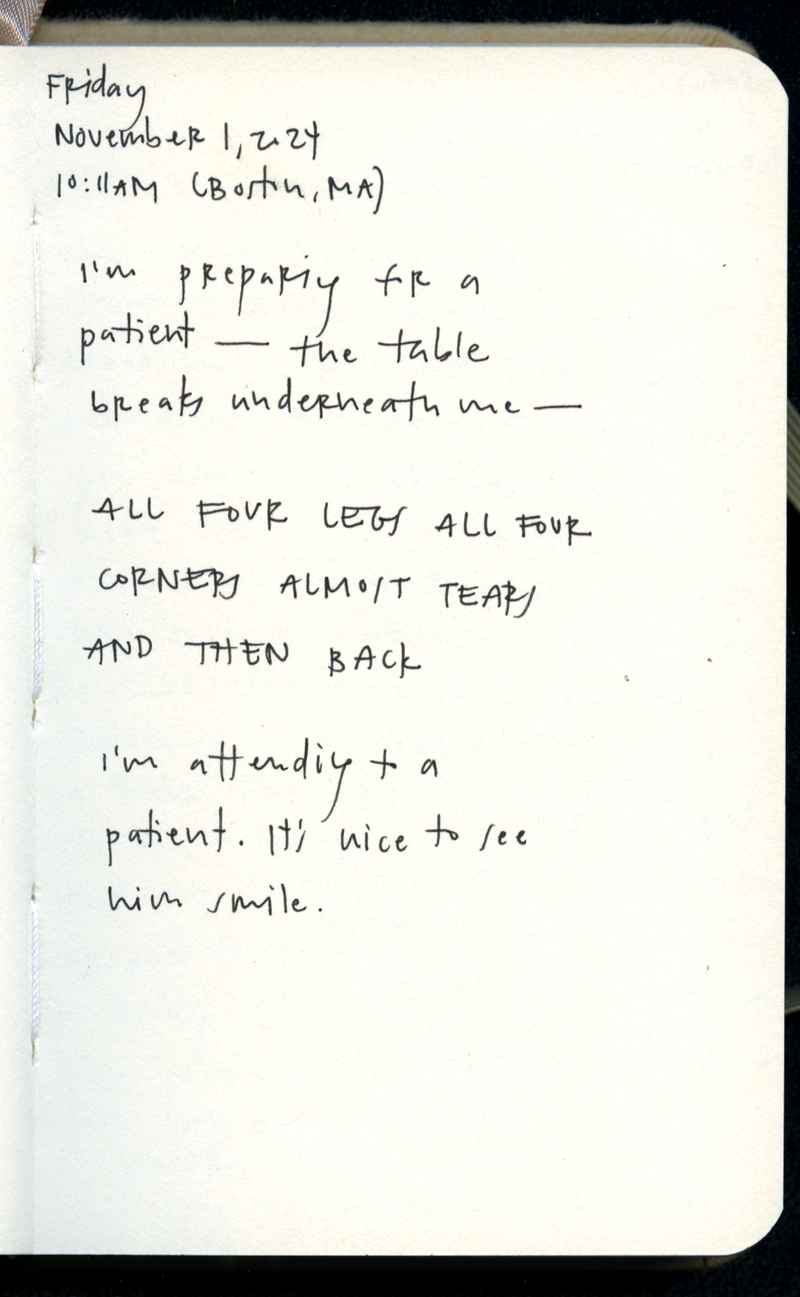 Friday
November 1, 2024
10:11AM (Boston, MA)
I'm preparing for a
patient — the table
breaks underneath me —
ALL FOUR LEGS ALL FOUR
CORNERS ALMOST TEARS
AND THEN BACK
I'm attending to a
patient. It's nice to see
him smile.